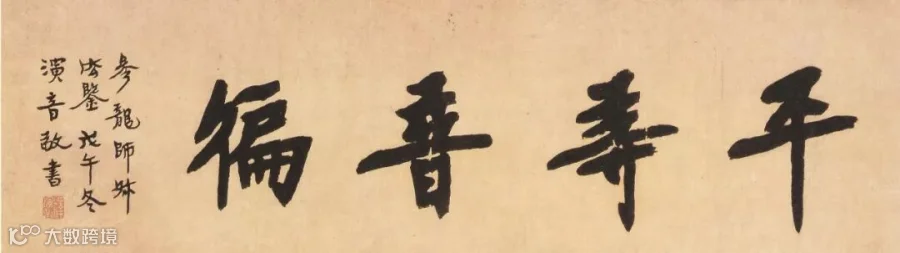 平等普徧
參龍師
法鑒 戊午冬
演音敬書
大数跨境